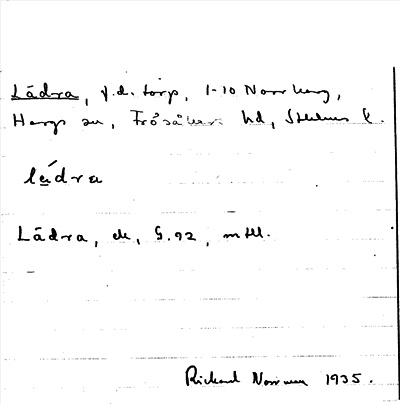 Lādra, f.d. torp, 1-10 Norrberg,
Hargs sn, Frösåkers hd, Sthlms l.
lä́dra
Lādra, ek, G.92, mtl.
Rickard Norrman 1935.